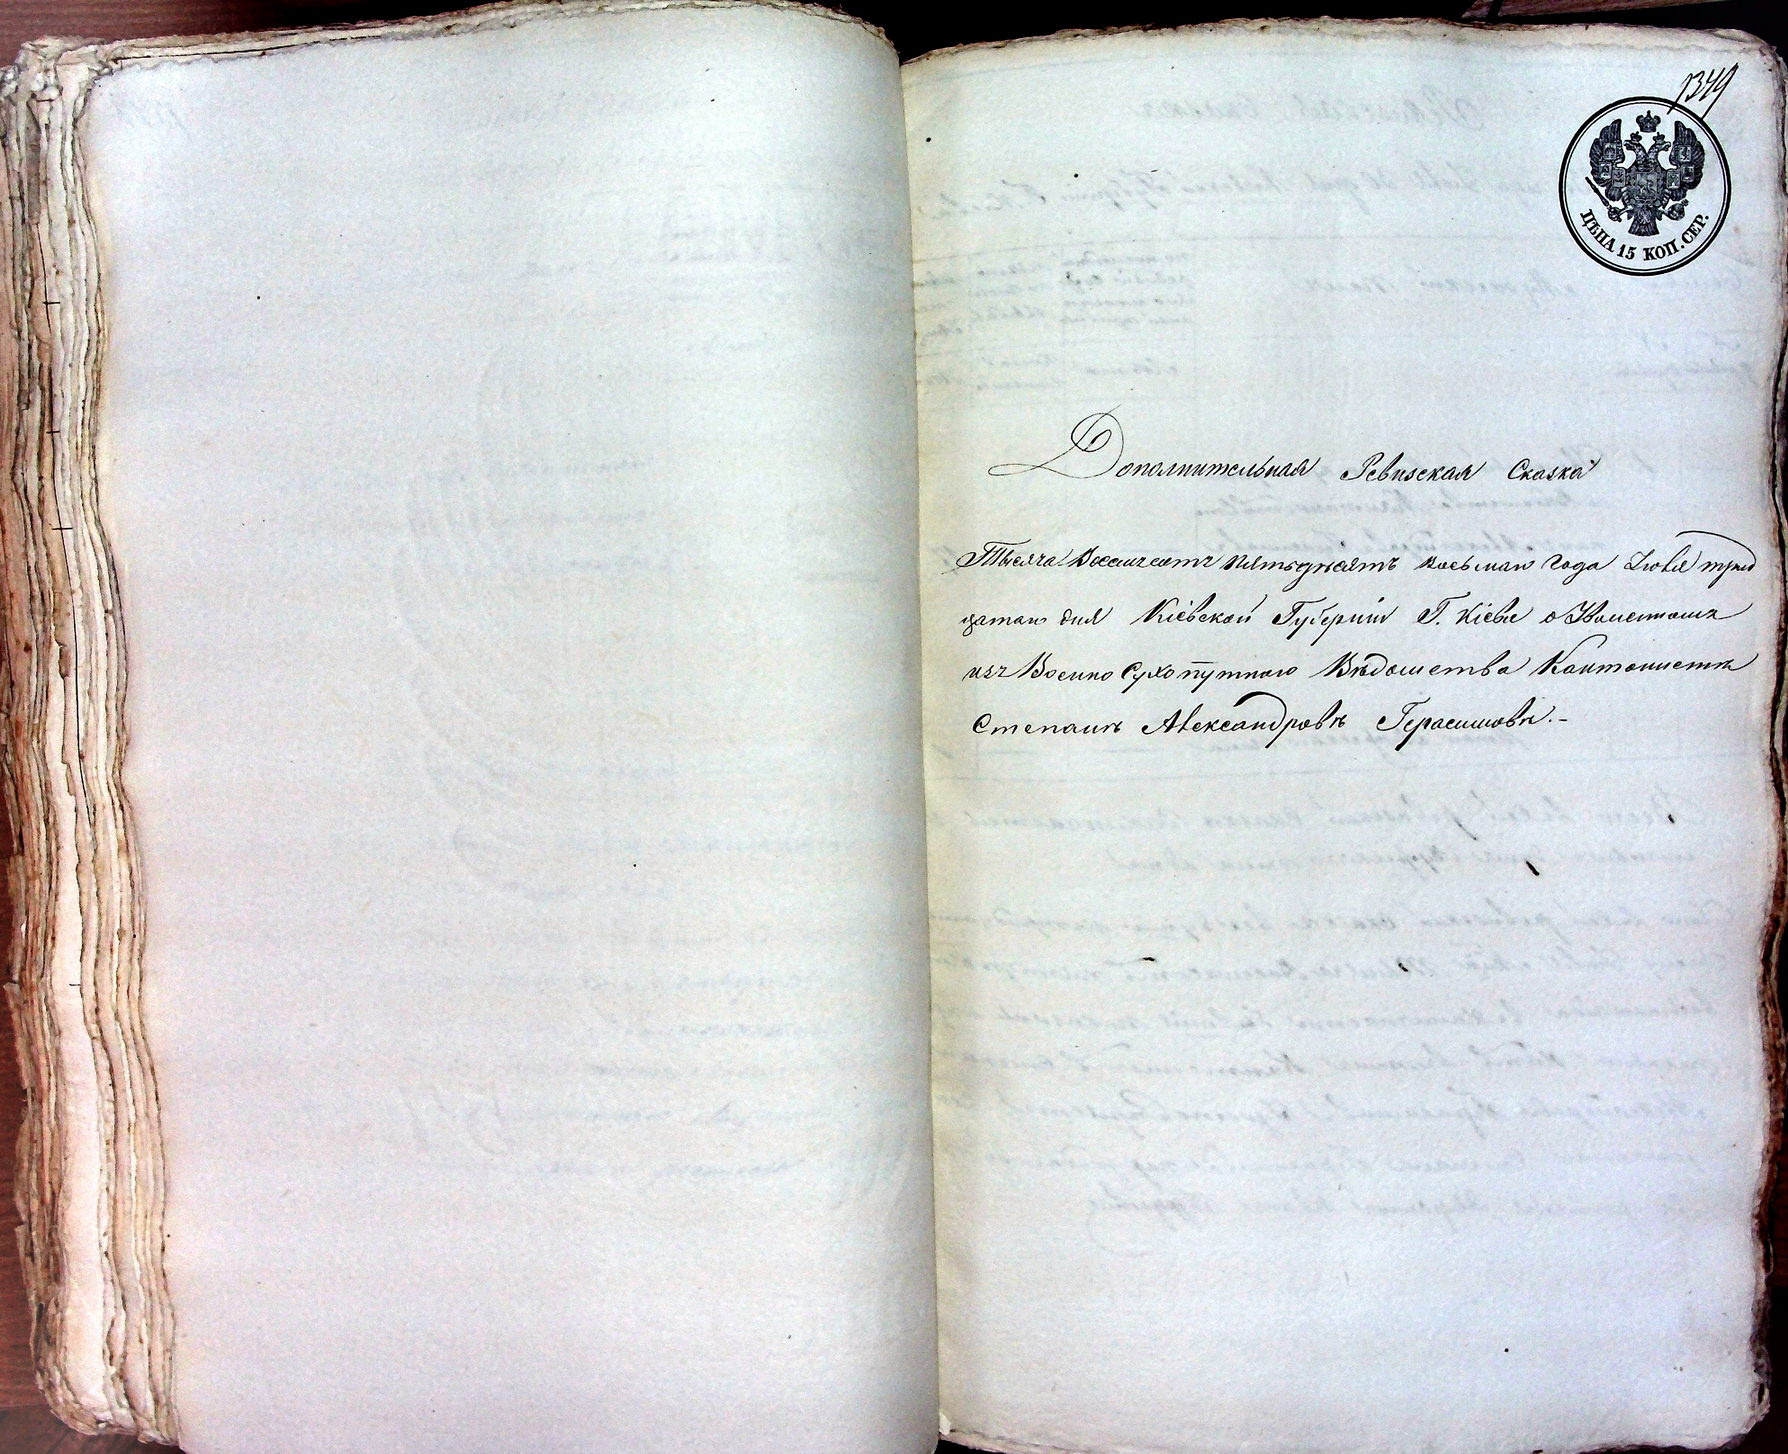 1349
ЦѢНА 15 КОП. СЕР.
Дополнительная Ревизская Сказка
Тысяча Восемсотъ пятьдесятъ восьмаго года Іюля трид
цатаго дня Кіевской Губерніи Г. Кіева о
изъ Военно Сухопутнаго Вѣдомства Кантонистѣ
Степанѣ Александровѣ Герасимовѣ.-